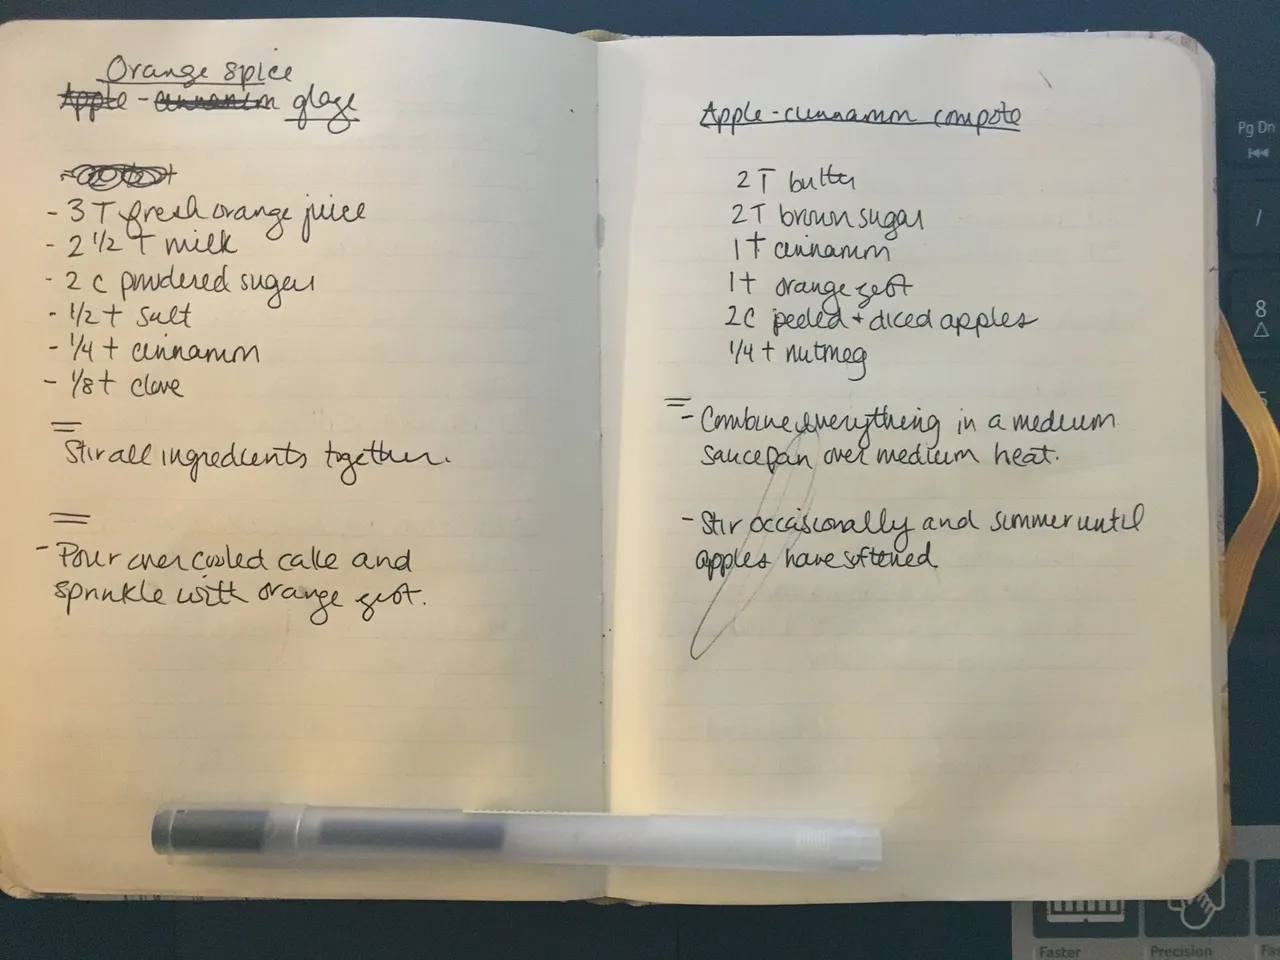 Orange spice
Apple - cinnamon glaze
- 3 T fresh orange juice
- 2 1/2 t milk
- 2 c powdered sugar
- 1/2 t salt
- 1/4 t cinnamon
- 1/8 t clove
Stir all ingredients together.
- Pour over cooled cake and
sprinkle with orange zest.
Apple - cinnamon compote
2 T butter
2 T brown sugar
1 t cinnamon
1 t orange zest
2 C peeled + diced apples
1/4 t nutmeg
- Combine everything in a medium
saucepan over medium heat.
- Stir occasionally and simmer until
apples have softened.
Pg Dn
/
8
Faster
Precision
Fas